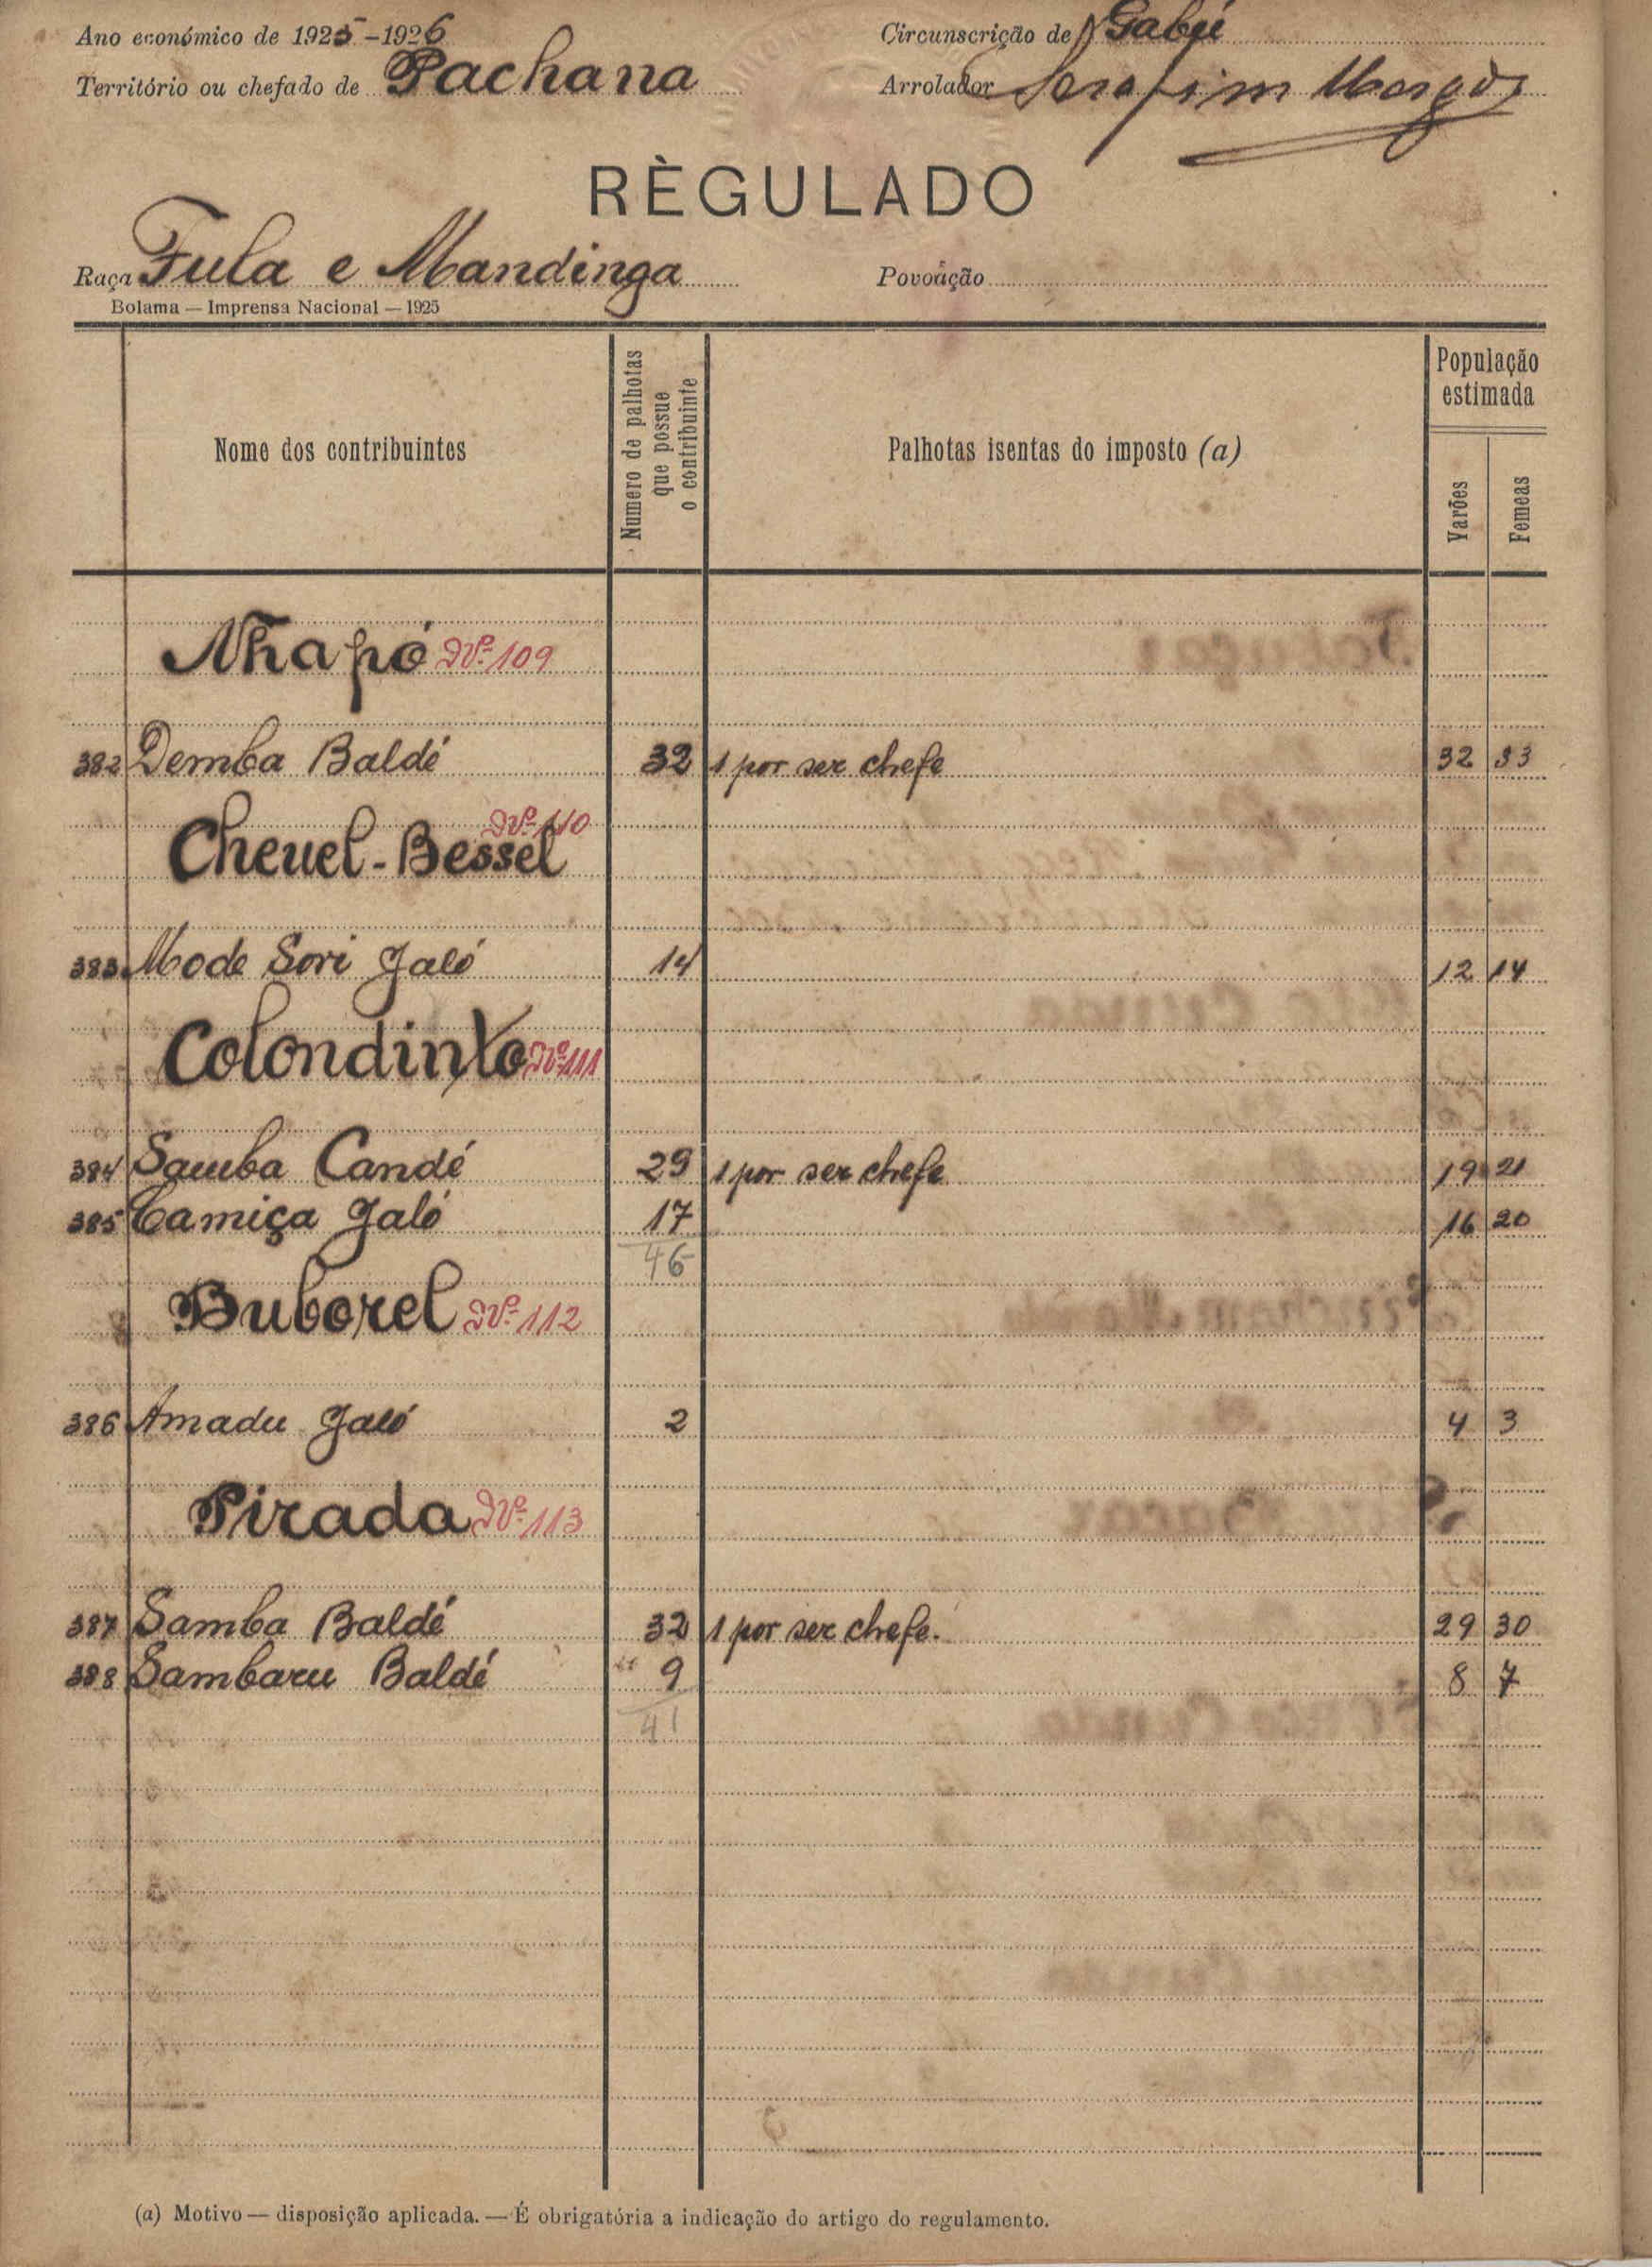 Ano económico de 1925-1926
Circunscrição de Gabú
Território ou chefado de Pachana
Arrolador Serafim
RÈGULADO
Raça Fula e Mandinga
Povoação
Bolama — Imprensa Nacional — 1925
Nome dos contribuintes
Numero de palhotas que possue o contribuinte
Palhotas isentas do imposto (a)
População estimada
Varões
Femeas
Nhapó Nº 109
382 Demba Baldé 32 1 por ser chefe 32 33
Cheuel-Bessel Nº 110
383 Mode Sori Jaló 14 12 14
Colondinto Nº 111
384 Samba Candé 29 1 por ser chefe 19 21
385 Camiça Jaló 17 16 20
46
Buborel Nº 112
386 Amadu Jaló 2 4 3
Pirada Nº 113
387 Samba Baldé 32 1 por ser chefe. 29 30
388 Sambaru Baldé " 9 8 7
41
(a) Motivo — disposição aplicada. — É obrigatória a indicação do artigo do regulamento.